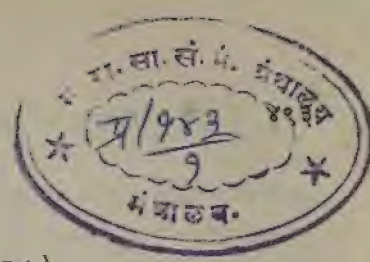 म. रा. सा. सं. मं. ग्रंथालय
प्र/१४३
१
मंत्रालय.